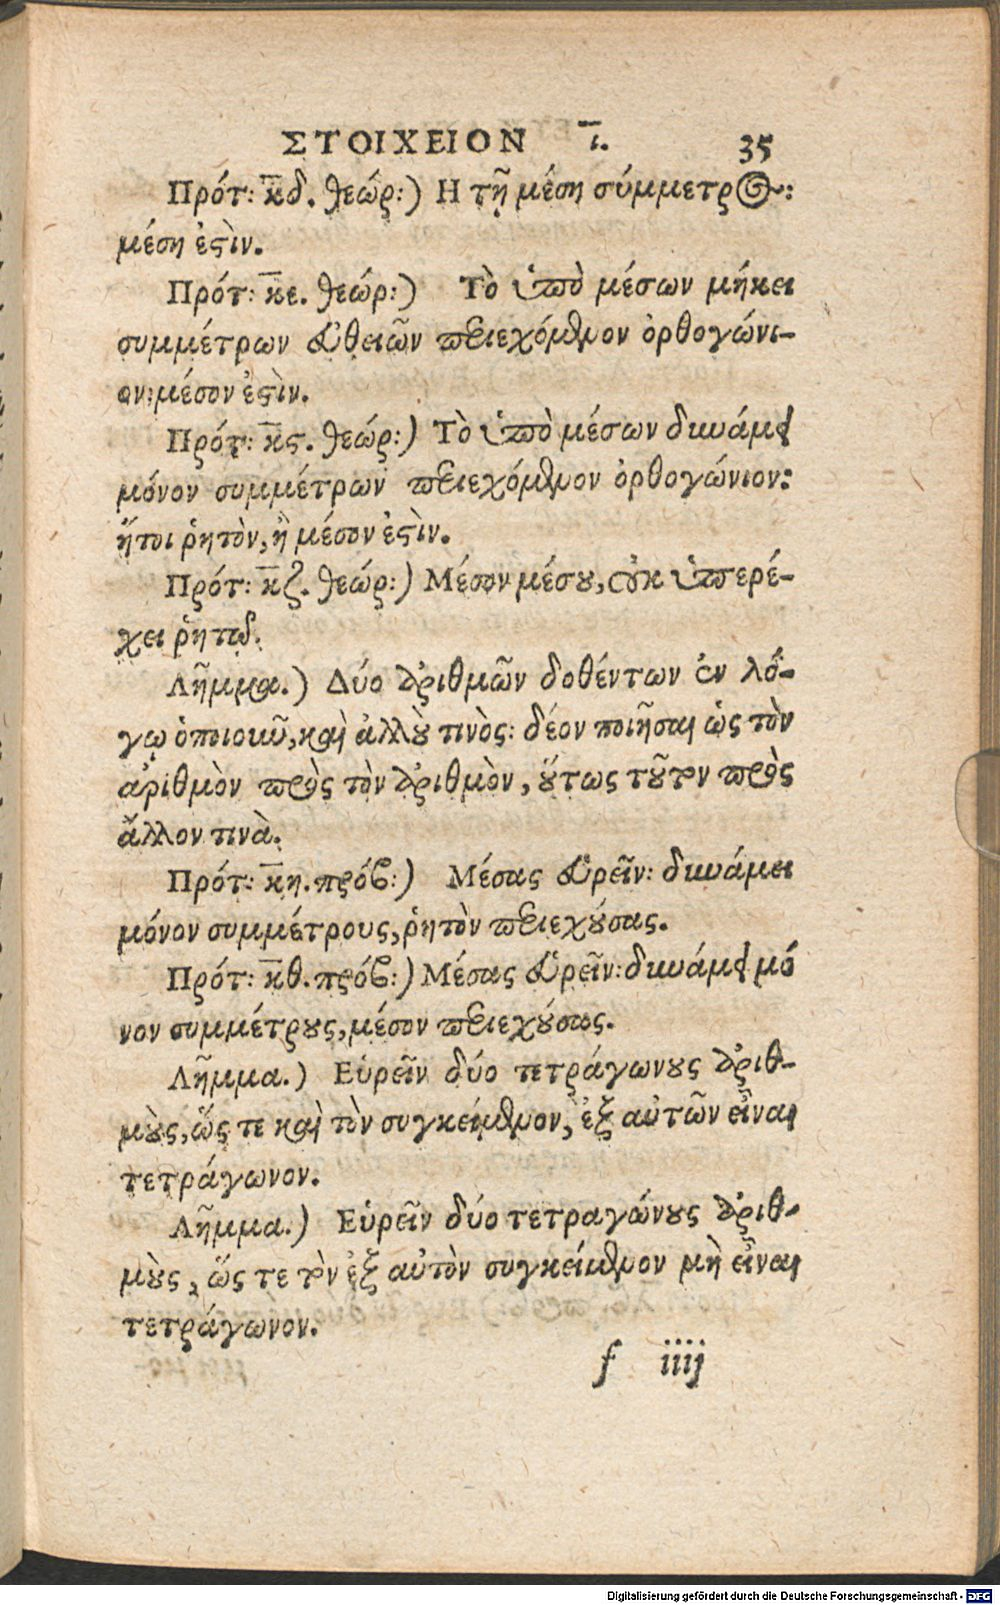 ΣΤΟΙΧΕΙΟΝ ι. 35
Πρότ: κδ. θεώρ:) Η τῇ μέσῃ σύμμετρος:
μέση ἐστὶν.
Πρότ: κε. θεώρ:) Τὸ ὑπὸ μέσων μήκει
συμμέτρων εὐθειῶν περιεχόμενον ὀρθογώνι-
ον: μέσον ἐστὶν.
Πρότ: κς. θεώρ:) Τὸ ὑπὸ μέσων δυνάμει
μόνον συμμέτρων περιεχόμενον ὀρθογώνιον:
ἤτοι ῥητὸν, ἢ μέσον ἐστὶν.
Πρότ: κζ. θεώρ:) Μέσον μέσου, οὐκ ὑπερέ-
χει ῥητῷ.
Λῆμμα.) Δύο ἀριθμῶν δοθέντων ἐν λό-
γῳ ὁποιουῦν, καὶ ἀλλοὺ τινὸς: δέον ποιῆσαι ὡς τὸν
ἀριθμὸν πρὸς τὸν ἀριθμὸν, οὕτως τοῦτον πρὸς
ἄλλον τινὰ.
Πρότ: κη. πρόβ:) Μέσας εὑρεῖν: δυνάμει
μόνον συμμέτρους, ῥητὸν περιεχούσας.
Πρότ: κθ. πρόβ:) Μέσας εὑρεῖν: δυνάμει μό
νον συμμέτρους, μέσον περιεχούσας.
Λῆμμα.) Εὑρεῖν δύο τετράγωνους ἀριθ-
μοὺς, ὥς τε καὶ τὸν συγκείμενον, ἐξ αὐτῶν εἶναι
τετράγωνον.
Λῆμμα.) Εὑρεῖν δύο τετραγώνους ἀριθ-
μοὺς, ὥς τε τὸν ἐξ αὐτὸν συγκείμενον μὴ εἶναι
τετράγωνον.
f iiij
Digitalisierung gefördert durch die Deutsche Forschungsgemeinschaft - DFG